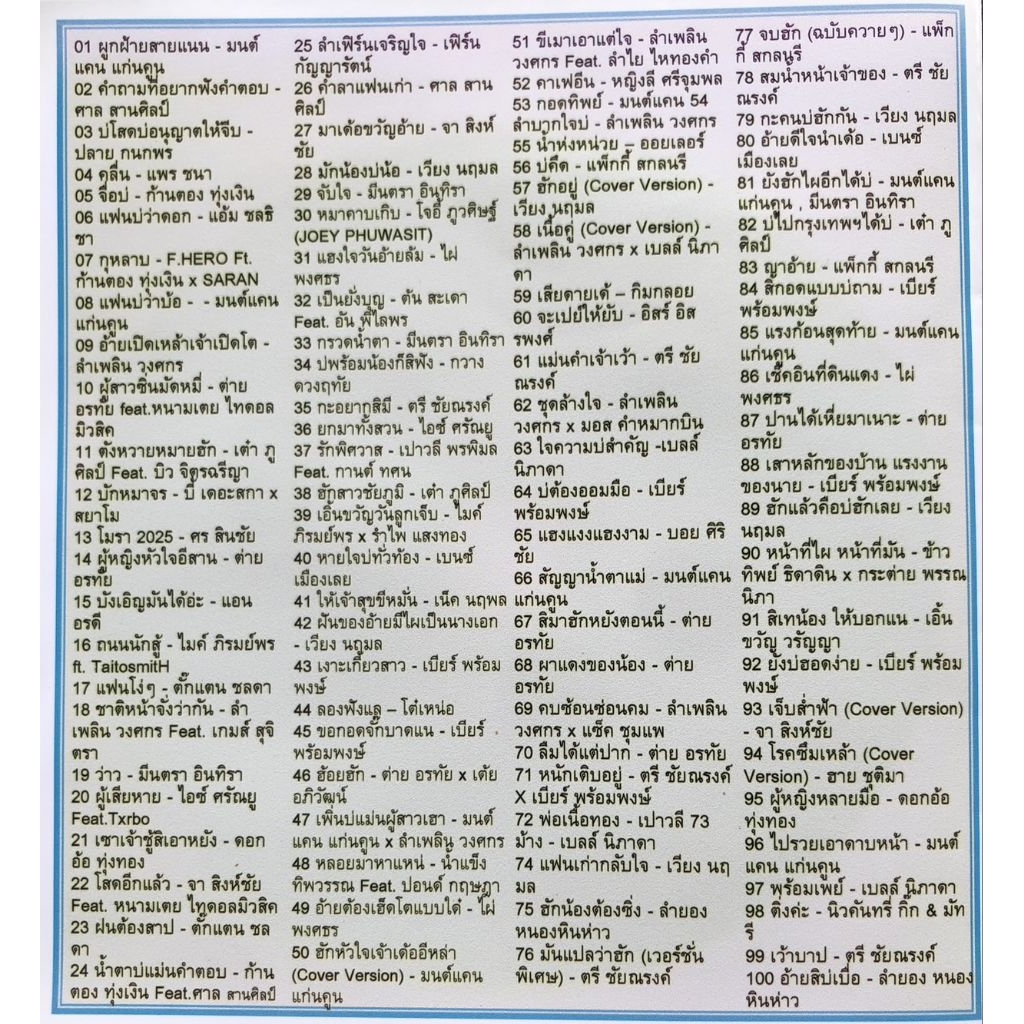 01 ผูกฝ้ายสายแนน - มนต์
แคน แก่นคูน
02 คำถามที่อยากฟังคำตอบ -
ศาล สานศิลป์
03 บ่โสดบ่อนุญาตให้จีบ -
ปลาย กนกพร
04 คลื่น - แพร ชนา
05 จื่อบ่ - ก้านตอง ทุ่งเงิน
06 แฟนบ่ว่าดอก - แอ้ม ชลธิ
ชา
07 กุหลาบ - F.HERO Ft.
ก้านตอง ทุ่งเงิน x SARAN
08 แฟนบ่ว่าบ้อ - - มนต์แคน
แก่นคูน
09 อ้ายเปิดเหล้าเจ้าเปิดโต -
ลำเพลิน วงศกร
10 ผู้สาวซิ่นมัดหมี่ - ต่าย
อรทัย feat.หนามเตย ไทดอล
มิวสิค
11 ตังหวายหมายฮัก - เต๋า ภู
ศิลป์ Feat. บิว จิตรฉรีญา
12 บักหมาจร - บี้ เดอะสกา x
สยาโม
13 โมรา 2025 - ศร สินชัย
14 ผู้หญิงหัวใจอีสาน - ต่าย
อรทัย
15 บังเอิญมันได้อ่ะ - แอน
อรดี
16 ถนนนักสู้ - ไมค์ ภิรมย์พร
ft. TaitosmitH
17 แฟนโง่ๆ - ตั๊กแตน ชลดา
18 ชาติหน้าจั่งว่ากัน - ลำ
เพลิน วงศกร Feat. เกมส์ สุจิ
ตรา
19 ว่าว - มีนตรา อินทิรา
20 ผู้เสียหาย - ไอซ์ ศรัณยู
Feat.Txrbo
21 เซาเจ้าชู้สิเอาหยัง - ดอก
อ้อ ทุ่งทอง
22 โสดอีกแล้ว - จา สิงห์ชัย
Feat. หนามเตย ไทดอลมิวสิค
23 ฝนต้องสาป - ตั๊กแตน ชล
ดา
24 น้ำตาบ่แม่นคำตอบ - ก้าน
ตอง ทุ่งเงิน Feat.ศาล สานศิลป์
25 ลำเฟิร์นเจริญใจ - เฟิร์น
กัญญารัตน์
26 คำลาแฟนเก่า - ศาล สาน
ศิลป์
27 มาเด้อขวัญอ้าย - จา สิงห์
ชัย
28 มักน้องบ่น้อ - เวียง นฤมล
29 จับใจ - มีนตรา อินทิรา
30 หมาคาบเกิบ - โจอี้ ภูวศิษฐ์
(JOEY PHUWASIT)
31 แฮงใจวันอ้ายล้ม - ไผ่
พงศธร
32 เป็นยั่งบุญ - ต้น สะเดา
Feat. อัน พิไลพร
33 กรวดน้ำตา - มีนตรา อินทิรา
34 บ่พร้อมน้องก็สิฟัง - กวาง
ดวงฤทัย
35 กะอยากสิมี - ตรี ชัยณรงค์
36 ยกมาทั้งสวน - ไอซ์ ศรัณยู
37 รักพิศวาส - เปาวลี พรพิมล
Feat. กานต์ ทศน
38 ฮักสาวชัยภูมิ - เต๋า ภูศิลป์
39 เอิ้นขวัญวันลูกเจ็บ - ไมค์
ภิรมย์พร x รำไพ แสงทอง
40 หายใจบ่ทั่วท้อง - เบนซ์
เมืองเลย
41 ให้เจ้าสุขขีหมั่น - เน็ค นฤพล
42 ฝันของอ้ายมีไผเป็นนางเอก
- เวียง นฤมล
43 เงาะเกี้ยวสาว - เบียร์ พร้อม
พงษ์
44 ลองฟังแล - โต๋เหน่อ
45 ขอกอดจั๊กบาดแน - เบียร์
พร้อมพงษ์
46 ฮ้อยฮัก - ต่าย อรทัย x เต้ย
อภิวัฒน์
47 เพิ่นบ่แม่นผู้สาวเฮา - มนต์
แคน แก่นคูน x ลำเพลิน วงศกร
48 หลอยมาหาแหน่ - น้ำแข็ง
ทิพวรรณ Feat. ปอนด์ กฤษฎา
49 อ้ายต้องเฮ็ดโตแบบใด๋ - ไผ่
พงศธร
50 ฮักหัวใจเจ้าเด้ออีหล่า
(Cover Version) - มนต์แคน
แก่นคูน
51 ขี้เมาเอาแต่ใจ - ลำเพลิน
วงศกร Feat. ลำไย ไหทองคำ
52 คาเฟอีน - หญิงลี ศรีจุมพล
53 กอดทิพย์ - มนต์แคน 54
ลำบากใจบ่ - ลำเพลิน วงศกร
55 น้ำห่งหน่วย – ออยเลอร์
56 บ่คึด - แพ็กกี้ สกลนรี
57 ฮักอยู่ (Cover Version) -
เวียง นฤมล
58 เนื้อคู่ (Cover Version) -
ลำเพลิน วงศกร x เบลล์ นิภา
ดา
59 เสียดายเด้ – กิมกลอย
60 จะเปย์ให้ยับ - อิสร์ อิส
รพงศ์
61 แม่นคำเจ้าเว้า - ตรี ชัย
ณรงค์
62 ชุดล้างใจ - ลำเพลิน
วงศกร x มอส คำหมากบิน
63 ใจความบ่สำคัญ -เบลล์
นิภาดา
64 บ่ต้องออมมือ - เบียร์
พร้อมพงษ์
65 แฮงแงงแฮงงาม - บอย ศิริ
ชัย
66 สัญญาน้ำตาแม่ - มนต์แคน
แก่นคูน
67 สิมาฮักหยังตอนนี้ - ต่าย
อรทัย
68 ผาแดงของน้อง - ต่าย
อรทัย
69 คบซ้อนซ่อนคม - ลำเพลิน
วงศกร x แซ็ค ชุมแพ
70 ลืมได้แต่ปาก - ต่าย อรทัย
71 หนักเติบอยู่ - ตรี ชัยณรงค์
X เบียร์ พร้อมพงษ์
72 พ่อเนื้อทอง - เปาวลี 73
ม้าง - เบลล์ นิภาดา
74 แฟนเก่ากลับใจ - เวียง นฤ
มล
75 ฮักน้องต้องซิ่ง - ลำยอง
หนองหินห่าว
76 มันแปลว่าฮัก (เวอร์ชั่น
พิเศษ) - ตรี ชัยณรงค์
77 จบฮัก (ฉบับควายๆ) - แพ็ก
กี้ สกลนรี
78 สมน้ำหน้าเจ้าของ - ตรี ชัย
ณรงค์
79 กะคนบ่ฮักกัน - เวียง นฤมล
80 อ้ายดีใจนำเด้อ - เบนซ์
เมืองเลย
81 ยังฮักไผอีกได้บ่ - มนต์แคน
แก่นคูน , มีนตรา อินทิรา
82 บ่ไปกรุงเทพฯได้บ่ - เต๋า ภู
ศิลป์
83 ญาอ้าย - แพ็กกี้ สกลนรี
84 สิกอดแบบบ่ถาม - เบียร์
พร้อมพงษ์
85 แรงก้อนสุดท้าย - มนต์แคน
แก่นคูน
86 เช็คอินที่ดินแดง - ไผ่
พงศธร
87 ปานได้เหี่ยมาเนาะ - ต่าย
อรทัย
88 เสาหลักของบ้าน แรงงาน
ของนาย - เบียร์ พร้อมพงษ์
89 ฮักแล้วคือบ่ฮักเลย - เวียง
นฤมล
90 หน้าที่ไผ หน้าที่มัน - ข้าว
ทิพย์ ธิดาดิน x กระต่าย พรรณ
นิภา
91 สิเทน้อง ให้บอกแน - เอิ้น
ขวัญ วรัญญา
92 ยังบ่ฮอดง่าย - เบียร์ พร้อม
พงษ์
93 เจ็บส่ำฟ้า (Cover Version)
- จา สิงห์ชัย
94 โรคซึมเหล้า (Cover
Version) - ฮาย ชุติมา
95 ผู้หญิงหลายมือ - ดอกอ้อ
ทุ่งทอง
96 ไปรวยเอาดาบหน้า - มนต์
แคน แก่นคูน
97 พร้อมเพย์ - เบลล์ นิภาดา
98 ติ่งค่ะ - นิวคันทรี่ กิ๊ก & มัท
รี
99 เว้าบาป - ตรี ชัยณรงค์
100 อ้ายสิบ่เบื่อ - ลำยอง หนอง
หินห่าว